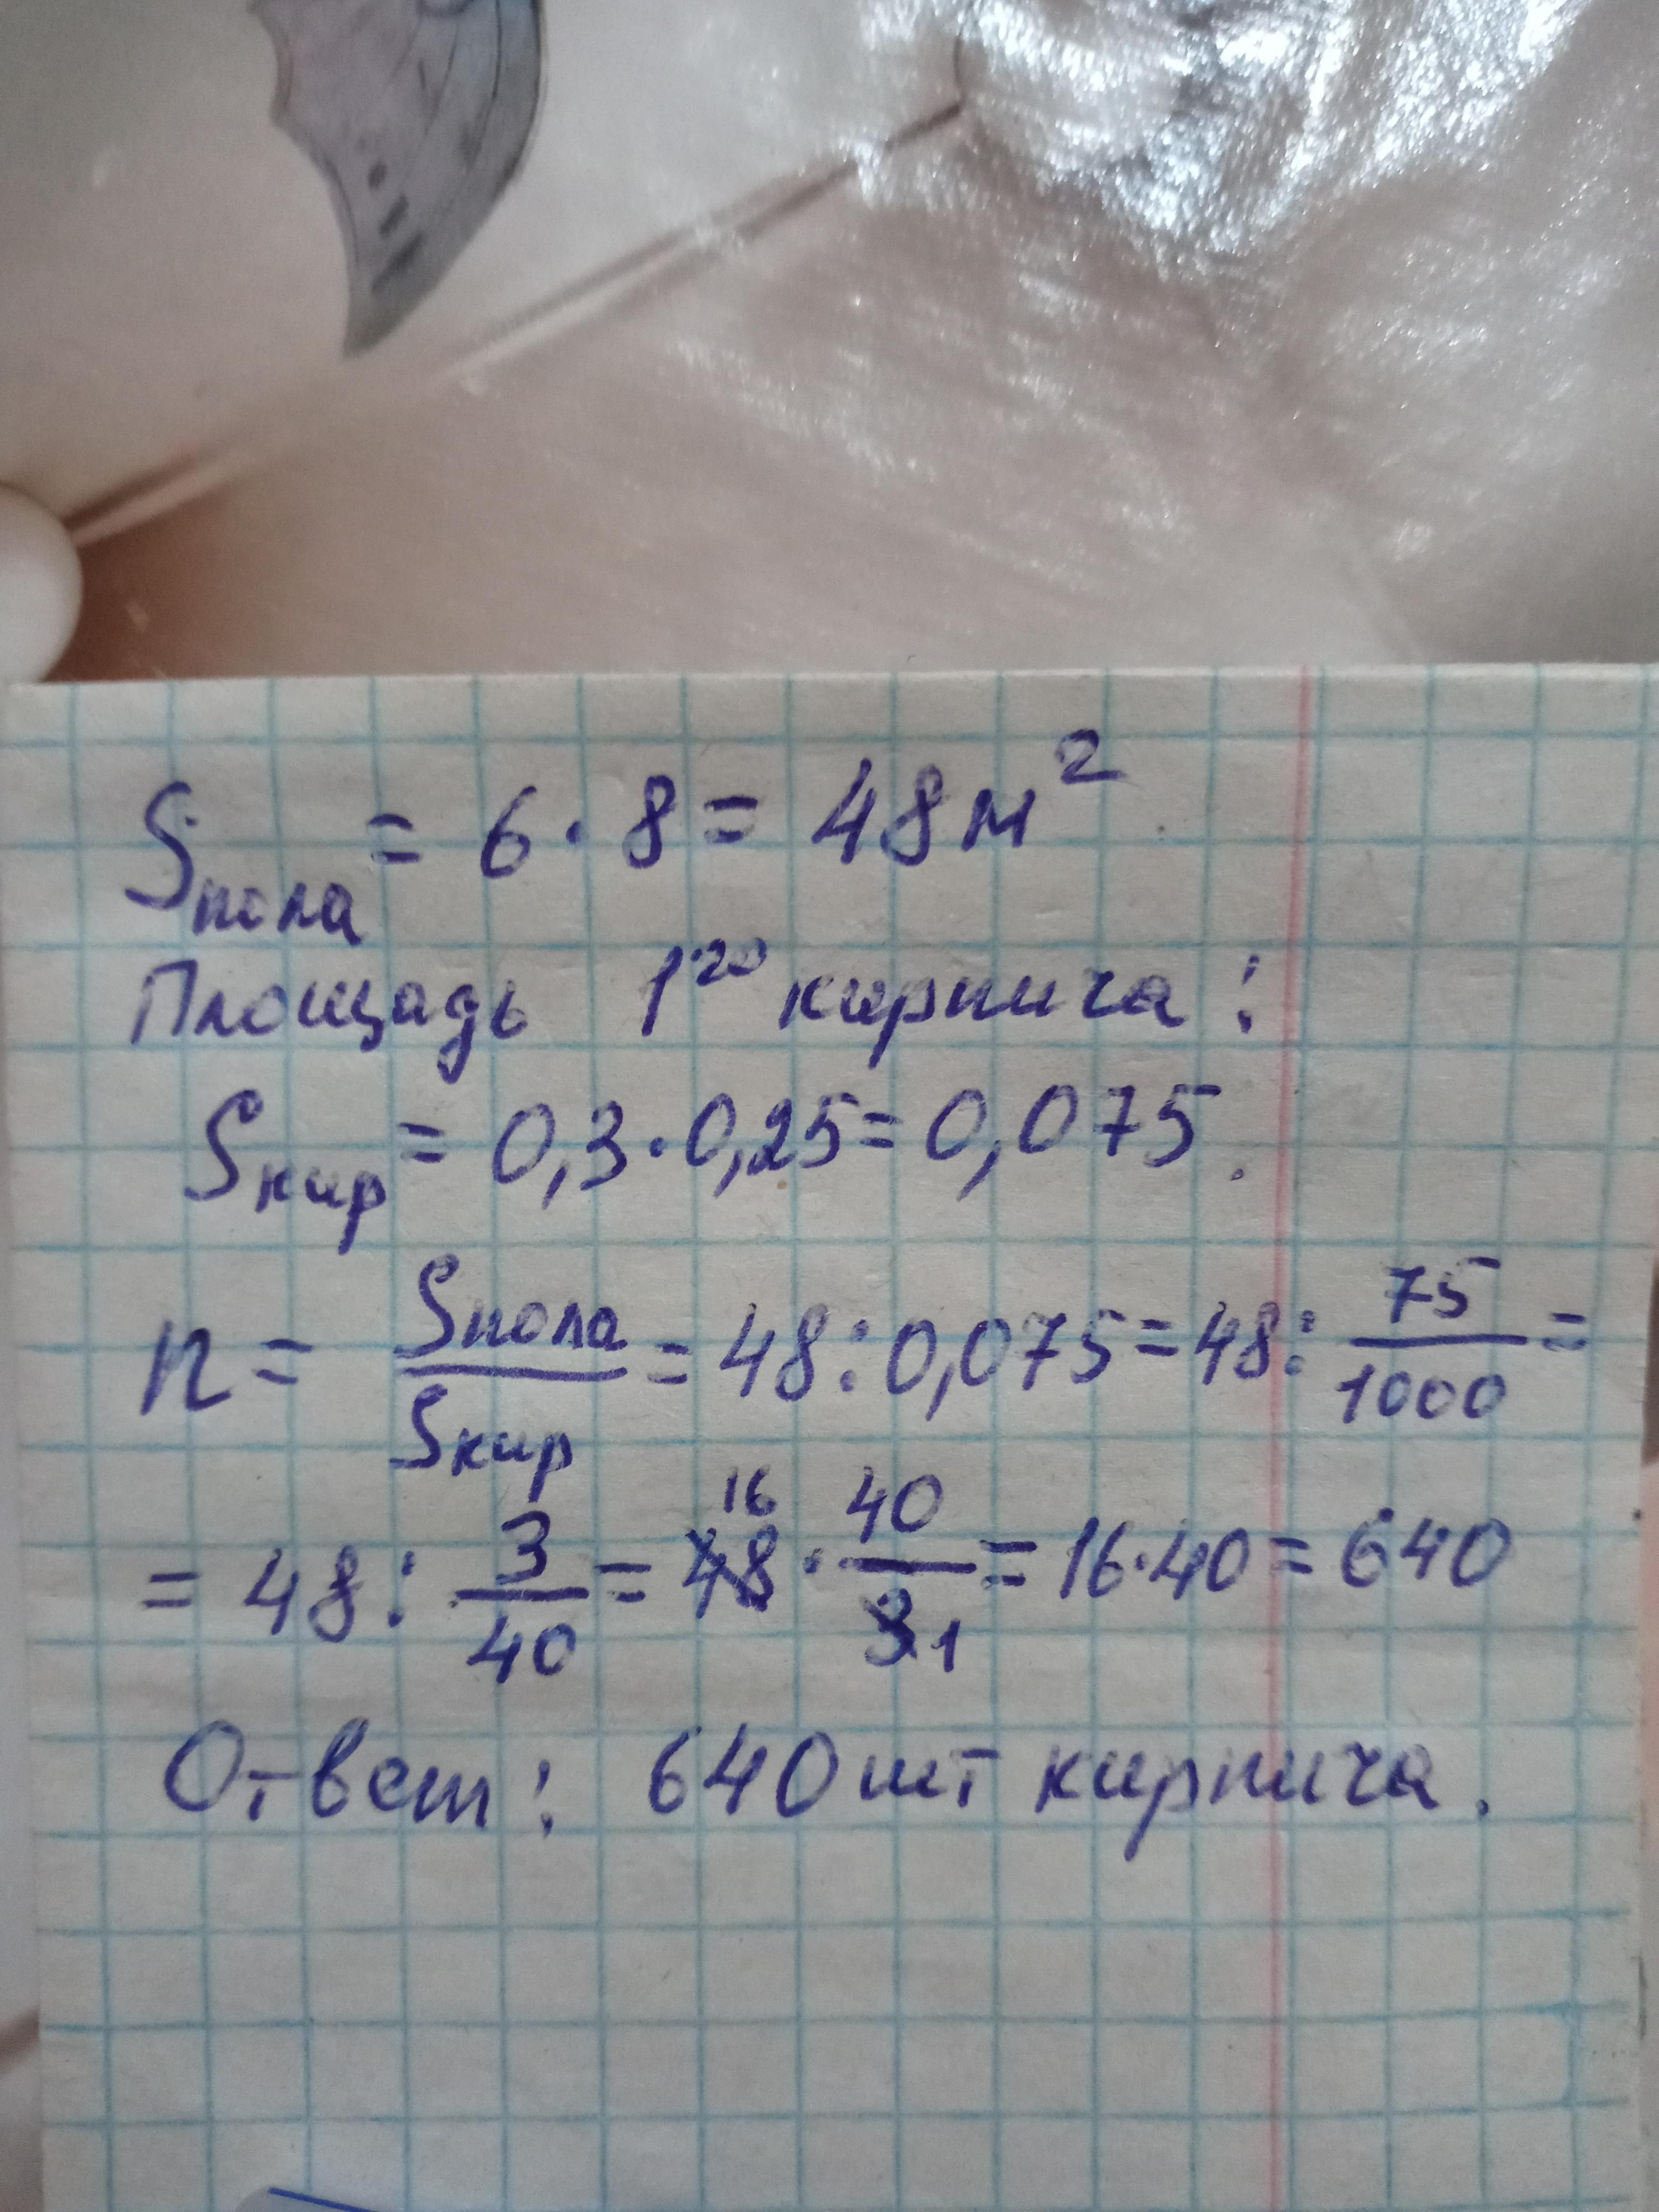 Sпола = 6 · 8 = 48 м²
Площадь 1го кирпича:
Sкир = 0,3 · 0,25 = 0,075.
n = Sпола/Sкир = 48 : 0,075 = 48 : 75/1000 =
= 48 : 3/40 = 48 16 · 40/3 1 = 16 · 40 = 640
Ответ: 640 шт кирпича.